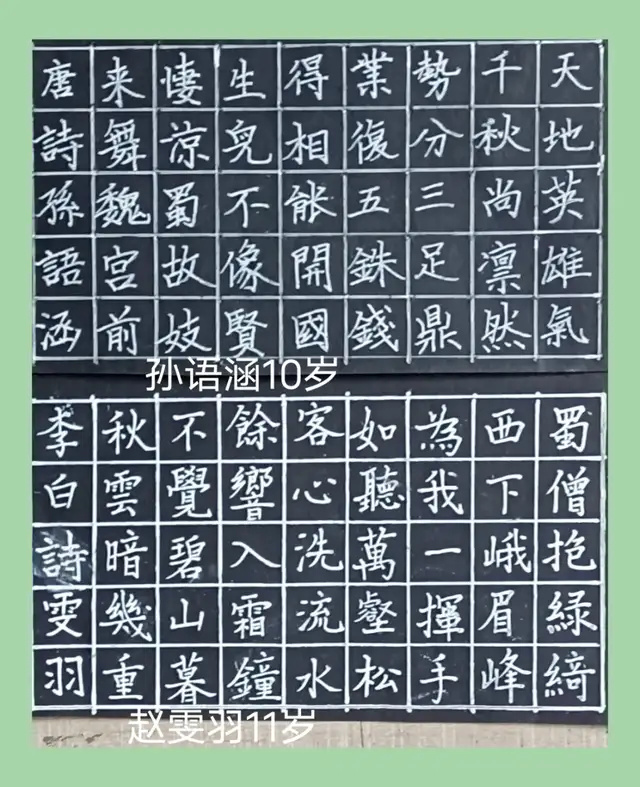 天地英雄氣
千秋尚凛然
勢分三足鼎
業復五銖錢
得相能開國
生兒不像賢
悽涼蜀故妓
来舞魏宮前
唐詩孫語涵
孙语涵10岁
蜀僧抱緑綺
西下峨眉峰
為我一揮手
如聽萬壑松
客心洗流水
餘響入霜鐘
不覺碧山暮
秋雲暗幾重
李白詩雯羽
赵雯羽11岁